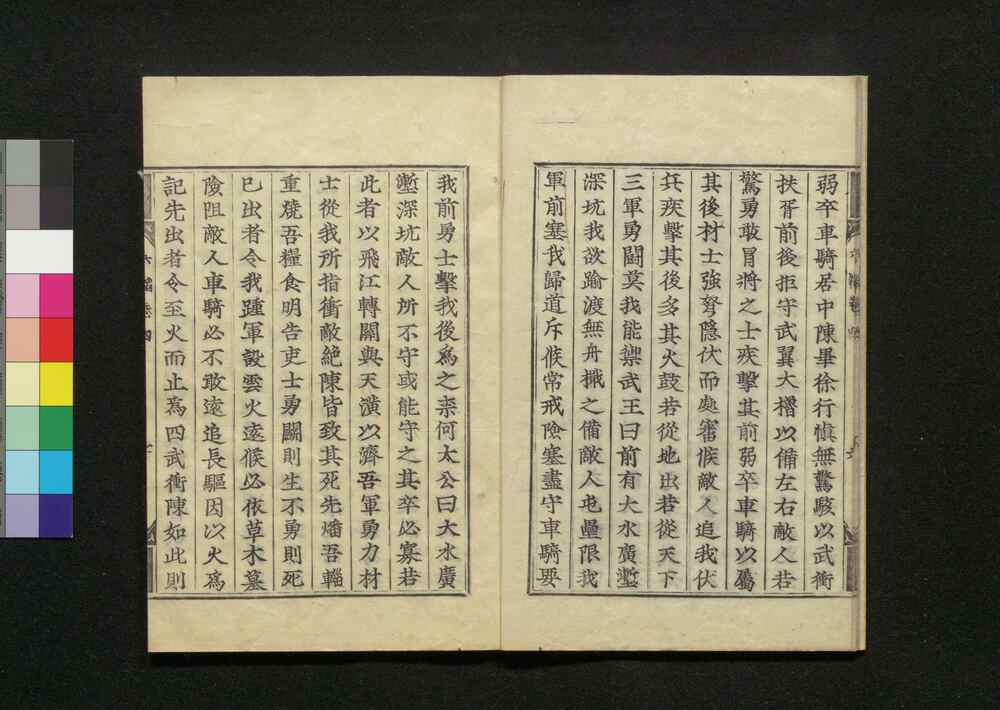 弱卒車騎居中陳畢徐行愼無驚駭以武衝
扶胥前後拒守武翼大櫓以備左右敵人若
驚勇敢冒將之士疾擊其前弱卒車騎以屬
其後材士強弩隱伏而處審候敵人追我伏
兵疾擊其後多其火鼓若從地出若從天下
三軍勇鬪莫我能禦武王曰前有大水廣塹
深坑我欲踰渡無舟檝之備敵人屯壘限我
軍前塞我歸道斥候常戒險塞盡守車騎要
我前勇士擊我後爲之柰何太公曰大水廣
塹深坑敵人所不守或能守之其卒必寡若
此者以飛江轉關與天潢以濟吾軍勇力材
士從我所指衝敵絶陳皆致其死先燔吾輜
重燒吾糧食明告吏士勇鬪則生不勇則死
已出者令我踵軍設雲火遠候必依草木墓
險阻敵人車騎必不敢遠追長驅因以火爲
記先出者令至火而止爲四武衝陳如此則
六韜卷四